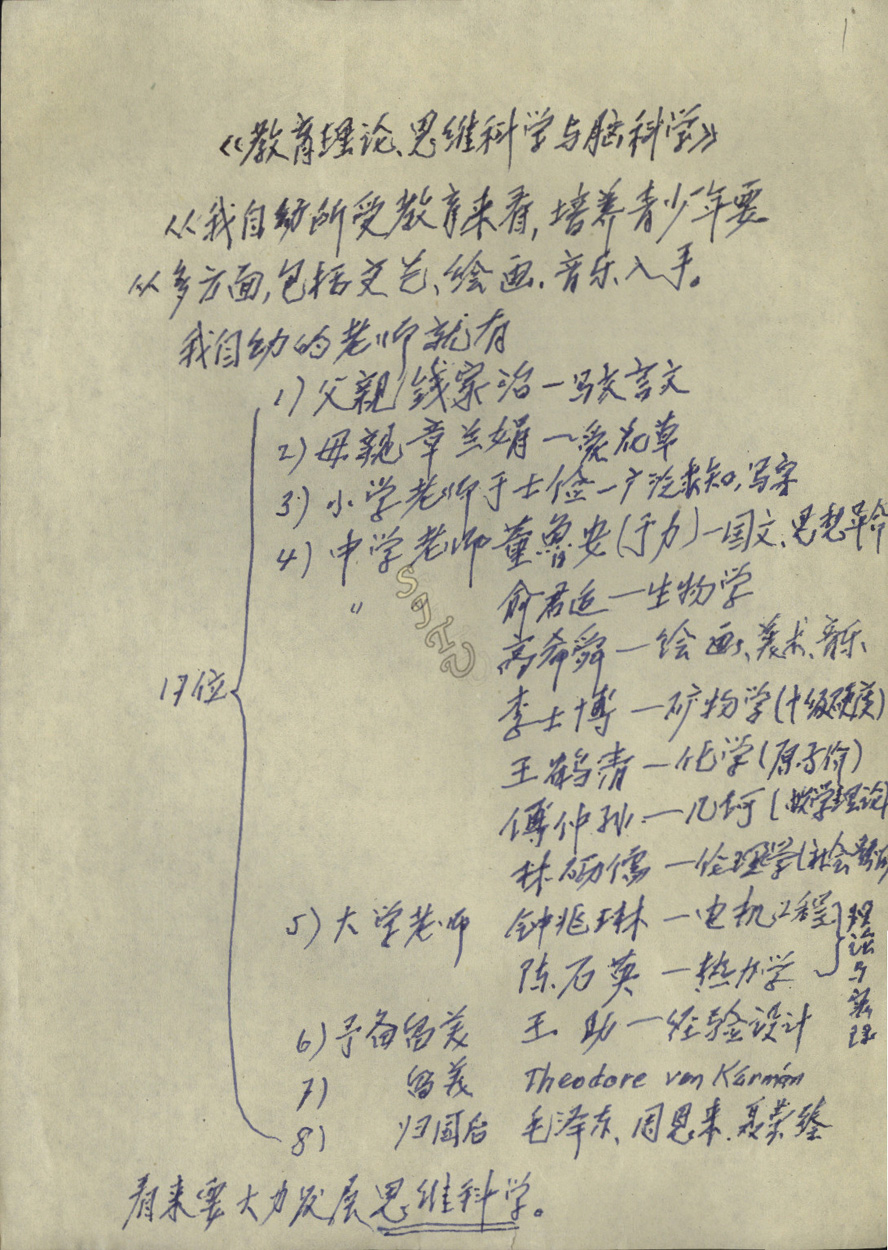 1
《教育理论、思维科学与脑科学》
从我自幼所受教育来看,培养青少年要
从多方面,包括文艺、绘画、音乐入手。
我自幼的老师就有
1) 父亲 钱家治—写文言文
2) 母亲 章兰娟—爱花草
3) 小学老师于士俭—广泛求知,写字
4) 中学老师 董鲁安(于力)—国文、思想革命
〃 俞君适—生物学
高希舜—绘画、美术、音乐
李士博—矿物学(十级硬度)
王鹤清—化学(原子价)
傅仲孙—几何(数学理论)
林砺儒—伦理学(社会
5) 大学老师 钟兆琳—电机工程
陈石英—热力学
理论与实际
6) 予备留美 王助—经验设计
7) 留美 Theodore von Kármán
8) 归国后 毛泽东、周恩来、聂荣臻
17位
看来要大力发展思维科学。
SJTU